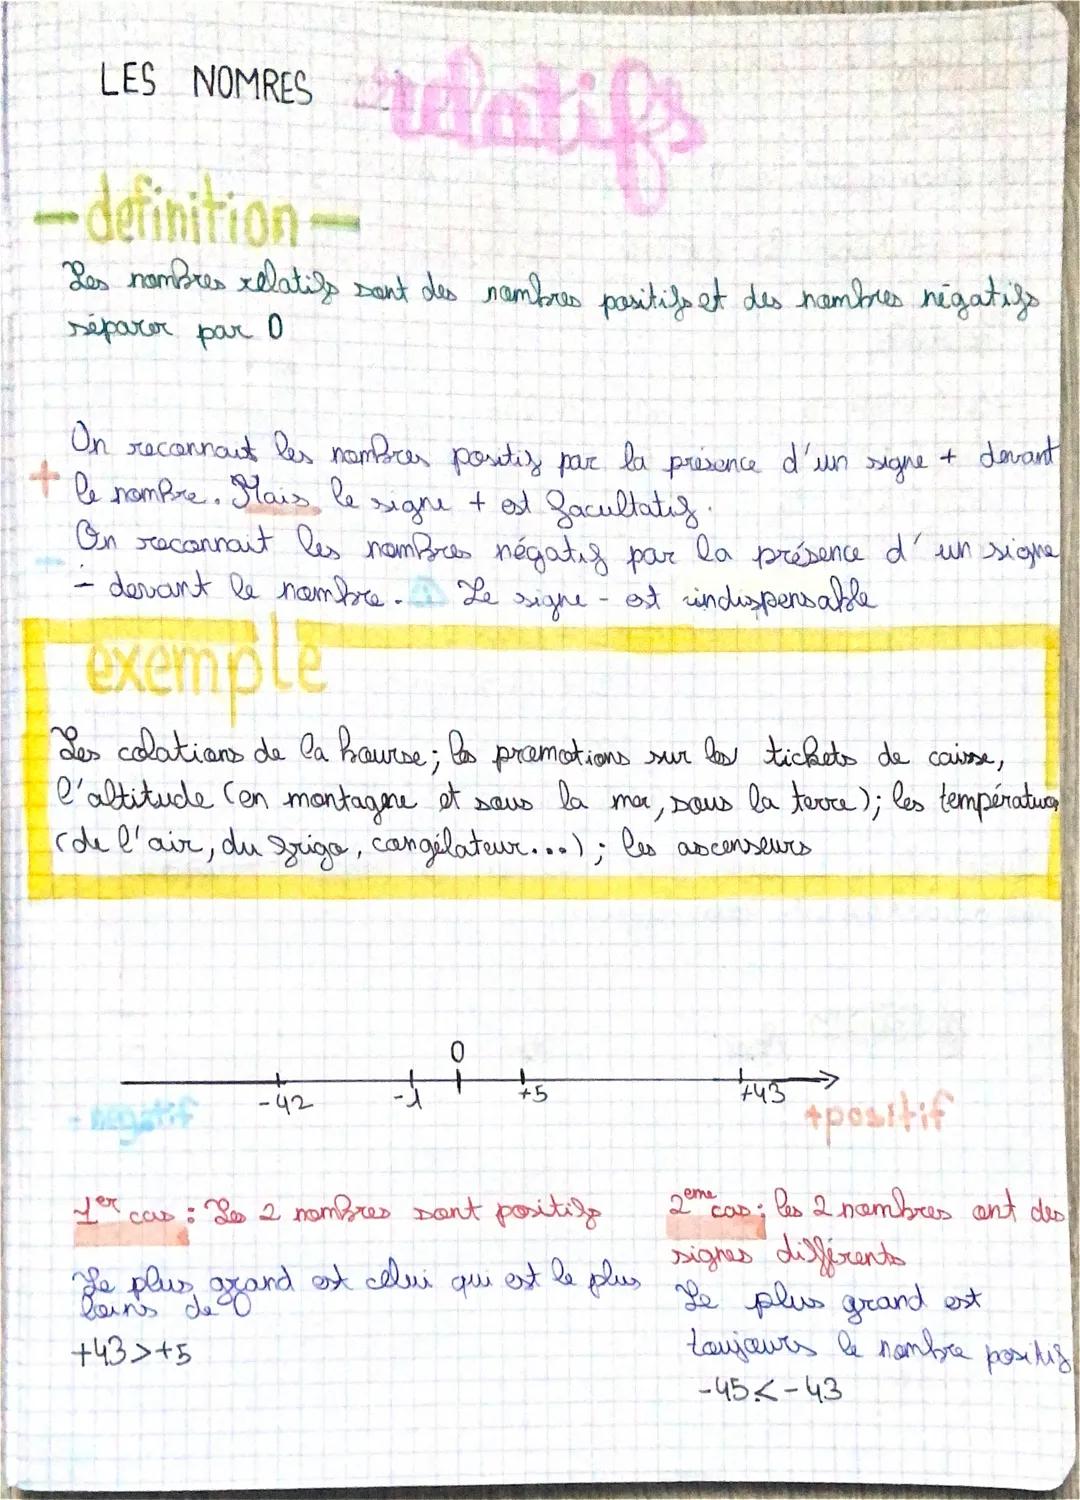 LES NOMRES relatifs
- definition -
Les nombres relatifs sont des nombres positifs et des nombres négatifs
séparer par 0
On reconnait les nombres positif par la présence d'un signe + devant
+ le nombre. Mais le signe + est facultatif.
On reconnait les nombres négatif par la présence d'un signe
- devant le nombre. Le signe - est indispensable
exemple
Les cotations de la bourse; les promotions sur les tickets de caisse,
l'altitude (en montagne et sous la mer, sous la terre); les températures
(de l'air, du frigo, congélateur...); les ascenseurs
0
-42 -1 +5 +43
- négatif +positif
1er cas : Les 2 nombres sont positifs
Le plus grand est celui qui est le plus
loins de 0
+43>+5
2eme cas : les 2 nombres ont des
signes différents
Le plus grand est
toujours le nombre positif
-45<-43